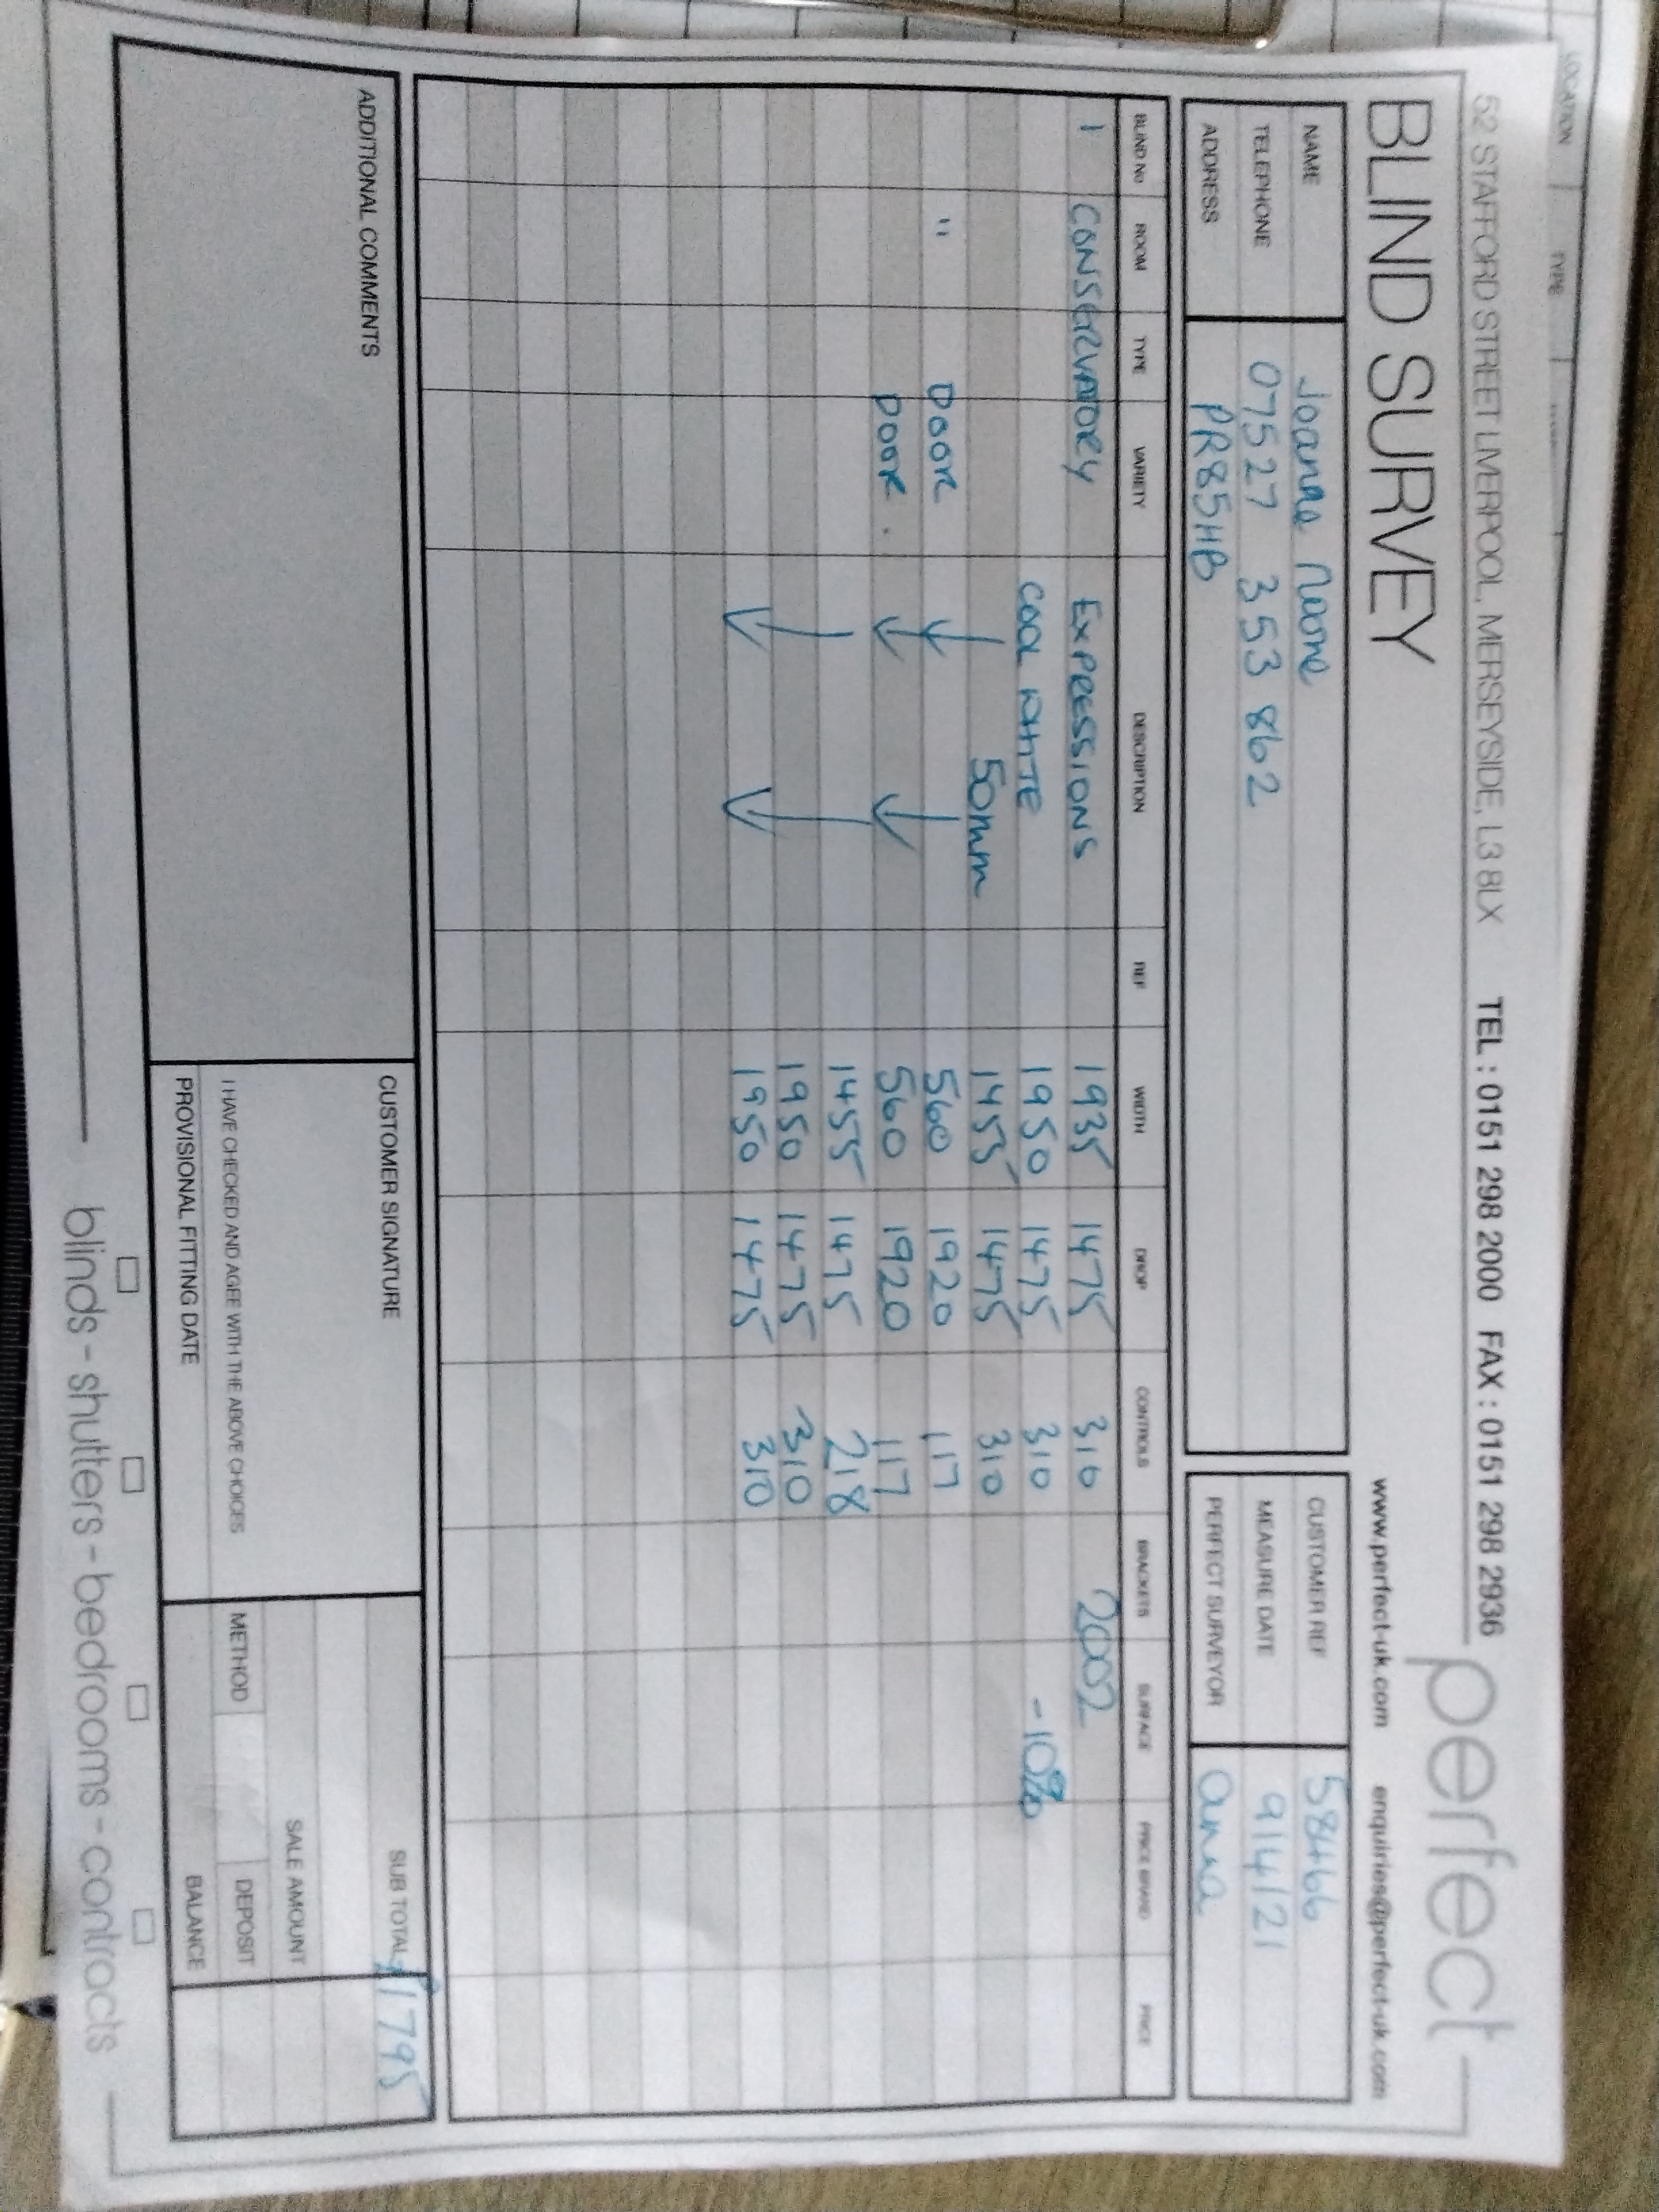 LOCATION TYPE
52 STAFFORD STREET LIVERPOOL, MERSEYSIDE, L3 8LX TEL : 0151 298 2000 FAX : 0151 298 2936
perfect
BLIND SURVEY
www.perfect-uk.com enquiries@perfect-uk.com
NAME Joanne Noone
TELEPHONE 07527 353 862
ADDRESS PR85HB
CUSTOMER REF 58466
MEASURE DATE 9/4/21
PERFECT SURVEYOR anna
BLIND No ROOM TYPE VARIETY DESCRIPTION REF WIDTH DROP CONTROLS BRACKETS SURFACE PRICE BAND PRICE
1 CONSERVATORY EXPRESSIONS 1935 1475 310 2002
COOL WHITE 1950 1475 310 -10%
50mm 1455 1475 310
" DOOR 560 1920 117
DOOR . 560 1920 117
1455 1475 218
1950 1475 310
1950 1475 310
ADDITIONAL COMMENTS
CUSTOMER SIGNATURE
I HAVE CHECKED AND AGEE WITH THE ABOVE CHOICES
PROVISIONAL FITTING DATE
SUB TOTAL £1795
SALE AMOUNT
METHOD DEPOSIT
BALANCE
blinds - shutters - bedrooms - contracts